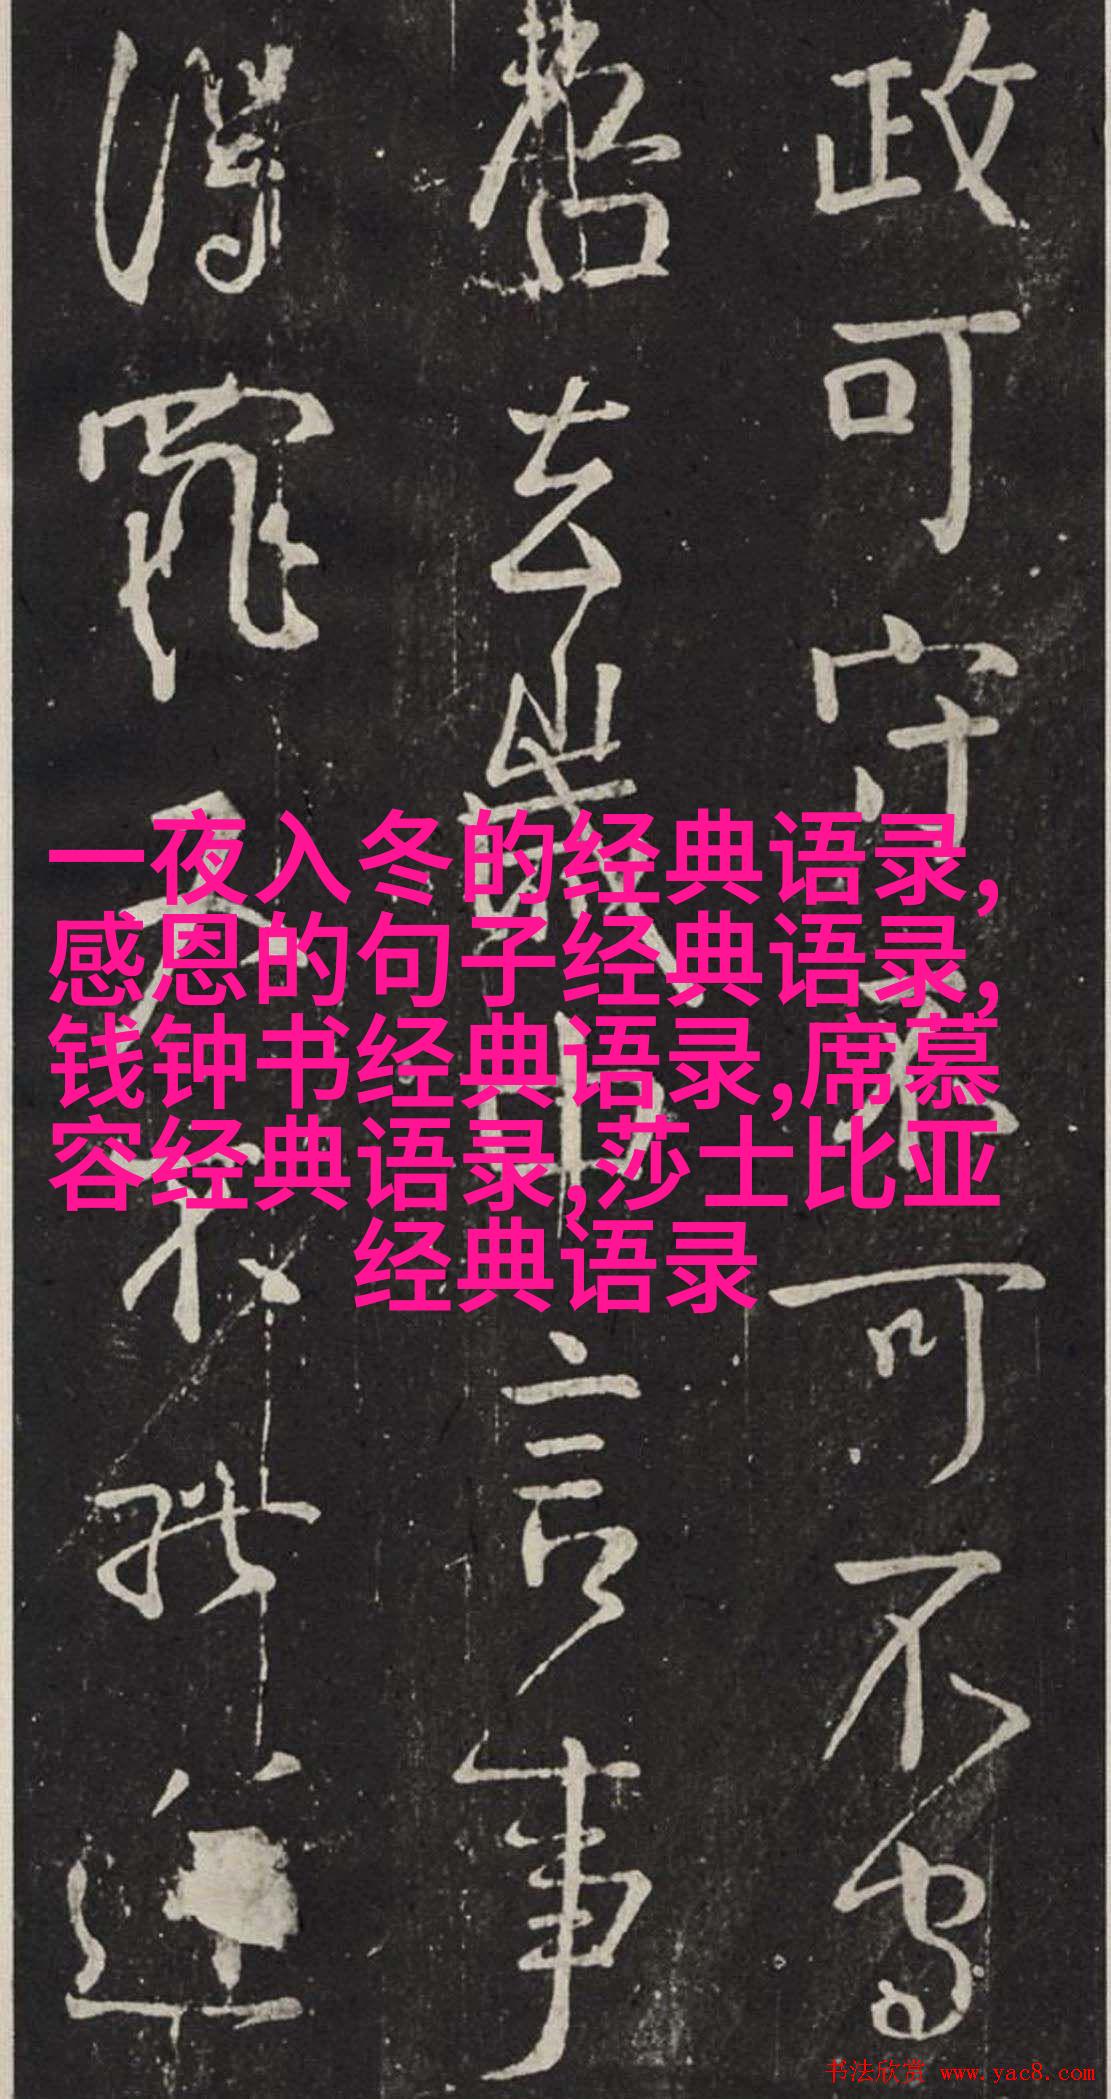 政可守不可不守
哲去歲中言事
得罪又不
一夜入冬的经典语录,
感恩的句子经典语录,
钱钟书经典语录,席慕
容经典语录,莎士比亚
经典语录
书法欣赏 www.yac8.com